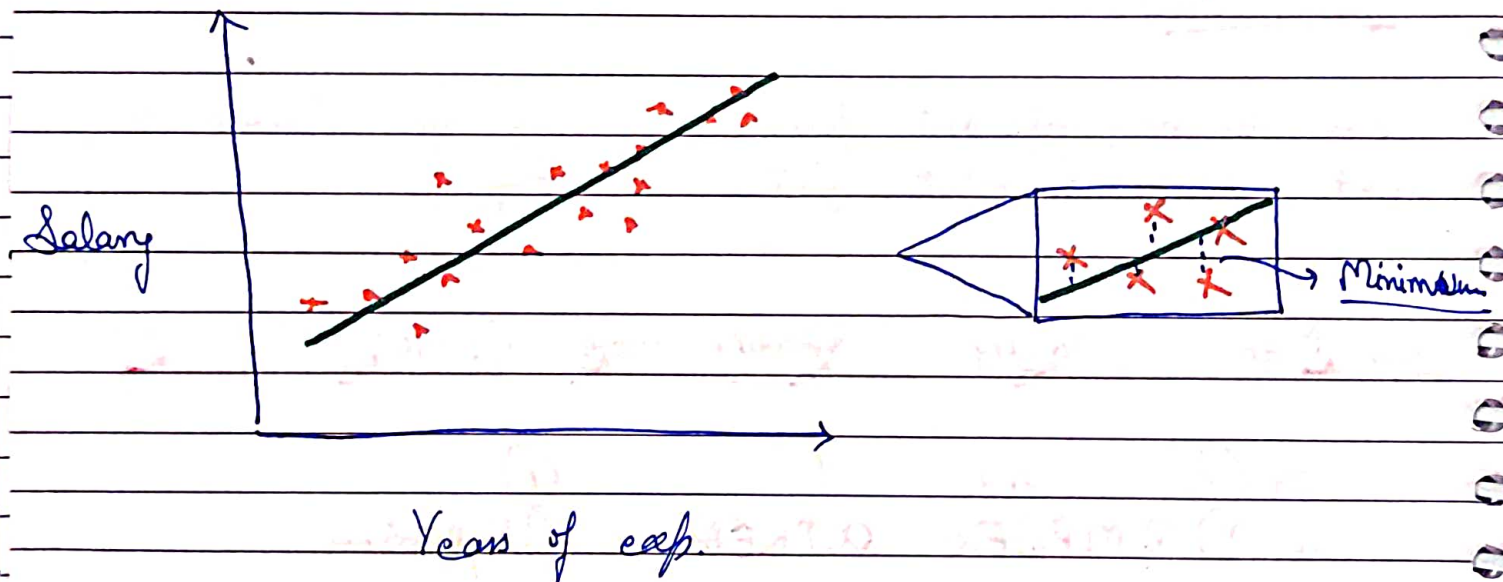 Salary
Minimum
Years of exp.